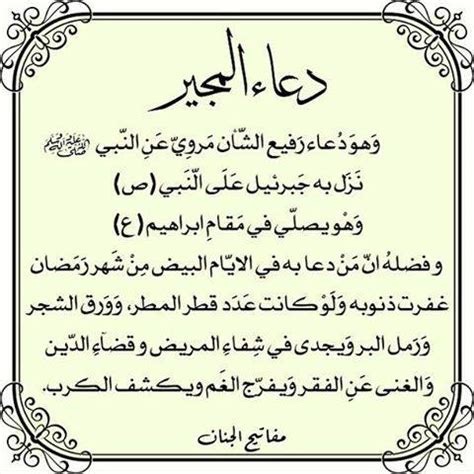 دعاء المجير
وَهوَ دُعاء رَفيع الشّأن مَرويّ عَنِ النّبي ﷺ
نَزَل به جَبرئيل عَلَى الّنَبي (ص)
وَهْو يصلّي في مَقامِ ابراهيم (ع)
و فضلهُ انّ مَنْ دعا به في الايّام البيض مِنْ شَهر رَمَضان
غفرت ذنوبه وَلَوْ كانت عَدَد قطر المطر، وَوَرق الشجر
وَرَمل البر وَيجدى في شِفاءِ المريض و قضآءِ الدّين
وَالغنى عَنِ الفقر وَيفرّج الغَم ويكشف الكرب.
مفاتيح الجنان